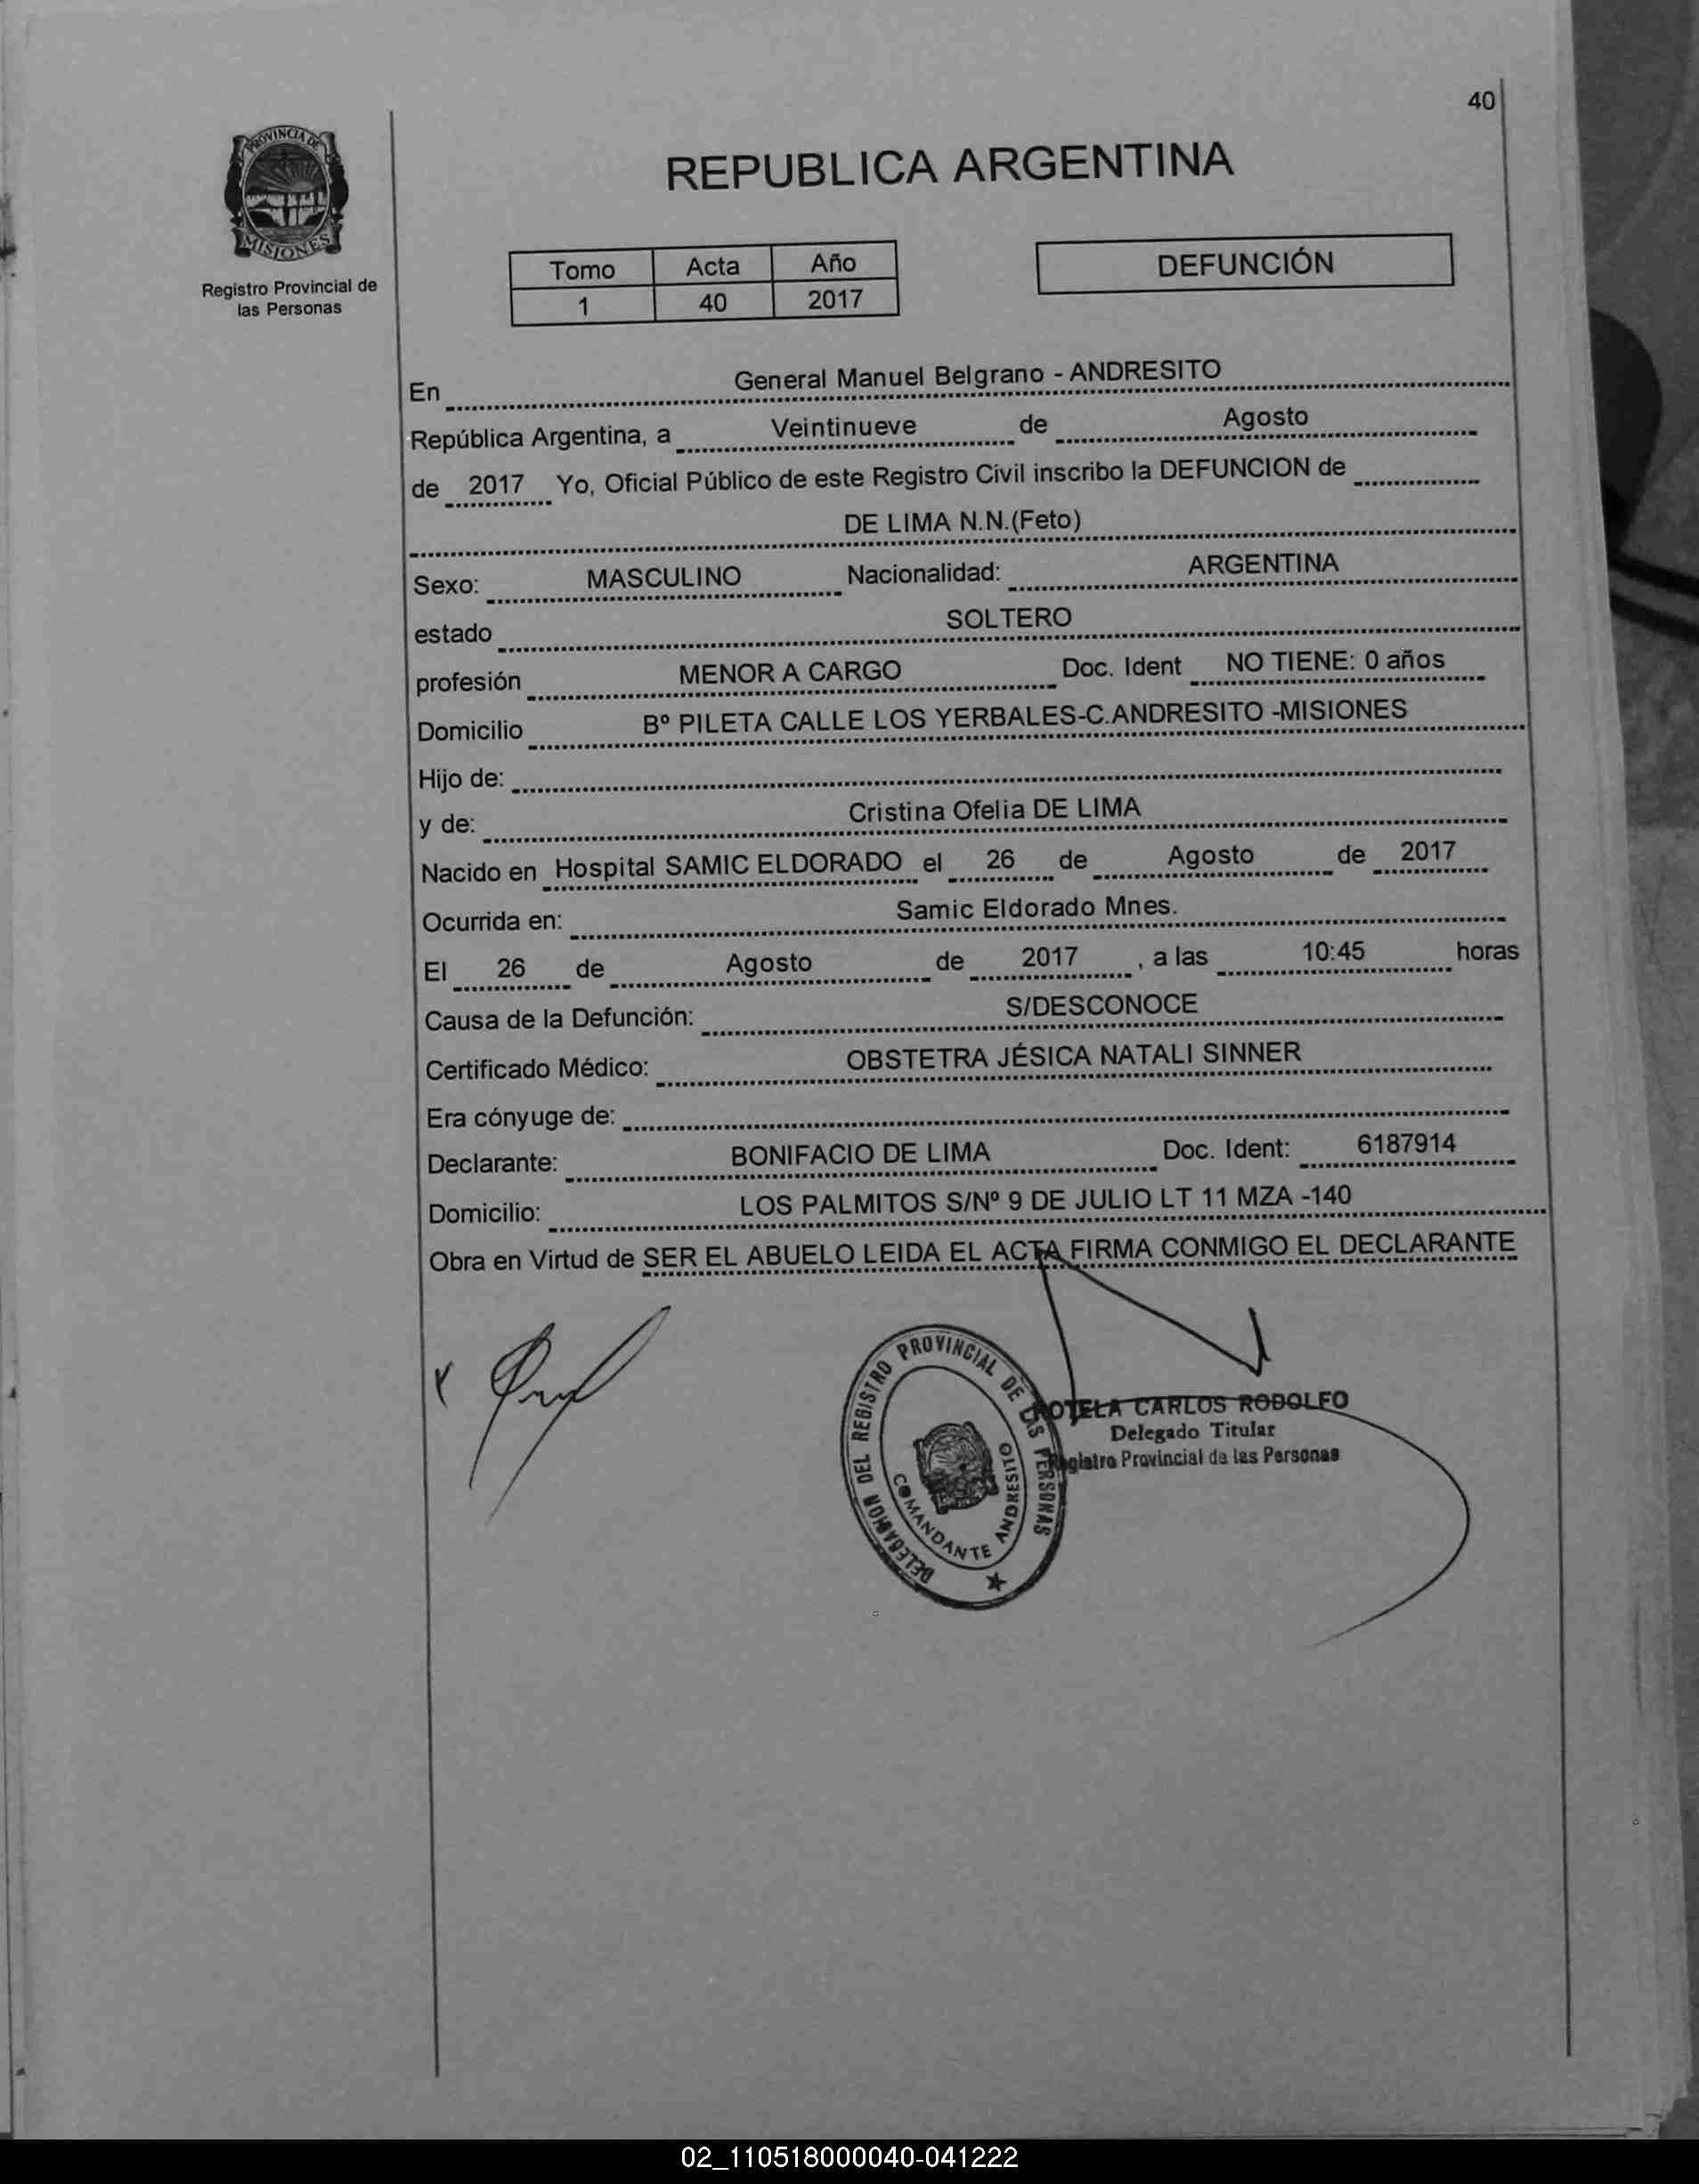 40
PROVINCIA DE
MISIONES
Registro Provincial de
las Personas
REPUBLICA ARGENTINA
Tomo Acta Año
1 40 2017
DEFUNCIÓN
En General Manuel Belgrano - ANDRESITO
República Argentina, a Veintinueve de Agosto
de 2017 Yo, Oficial Público de este Registro Civil inscribo la DEFUNCION de
DE LIMA N.N.(Feto)
Sexo: MASCULINO Nacionalidad: ARGENTINA
estado SOLTERO
profesión MENOR A CARGO Doc. Ident NO TIENE: 0 años
Domicilio Bº PILETA CALLE LOS YERBALES-C.ANDRESITO -MISIONES
Hijo de:
y de: Cristina Ofelia DE LIMA
Nacido en Hospital SAMIC ELDORADO el 26 de Agosto de 2017
Ocurrida en: Samic Eldorado Mnes.
El 26 de Agosto de 2017 , a las 10:45 horas
Causa de la Defunción: S/DESCONOCE
Certificado Médico: OBSTETRA JÉSICA NATALI SINNER
Era cónyuge de:
Declarante: BONIFACIO DE LIMA Doc. Ident: 6187914
Domicilio: LOS PALMITOS S/Nº 9 DE JULIO LT 11 MZA -140
Obra en Virtud de SER EL ABUELO LEIDA EL ACTA FIRMA CONMIGO EL DECLARANTE
DELEGACION DEL REGISTRO PROVINCIAL DE LAS PERSONAS
COMANDANTE ANDRESITO
CARLOS RODOLFO
Delegado Titular
Registro Provincial de las Personas
02_110518000040-041222